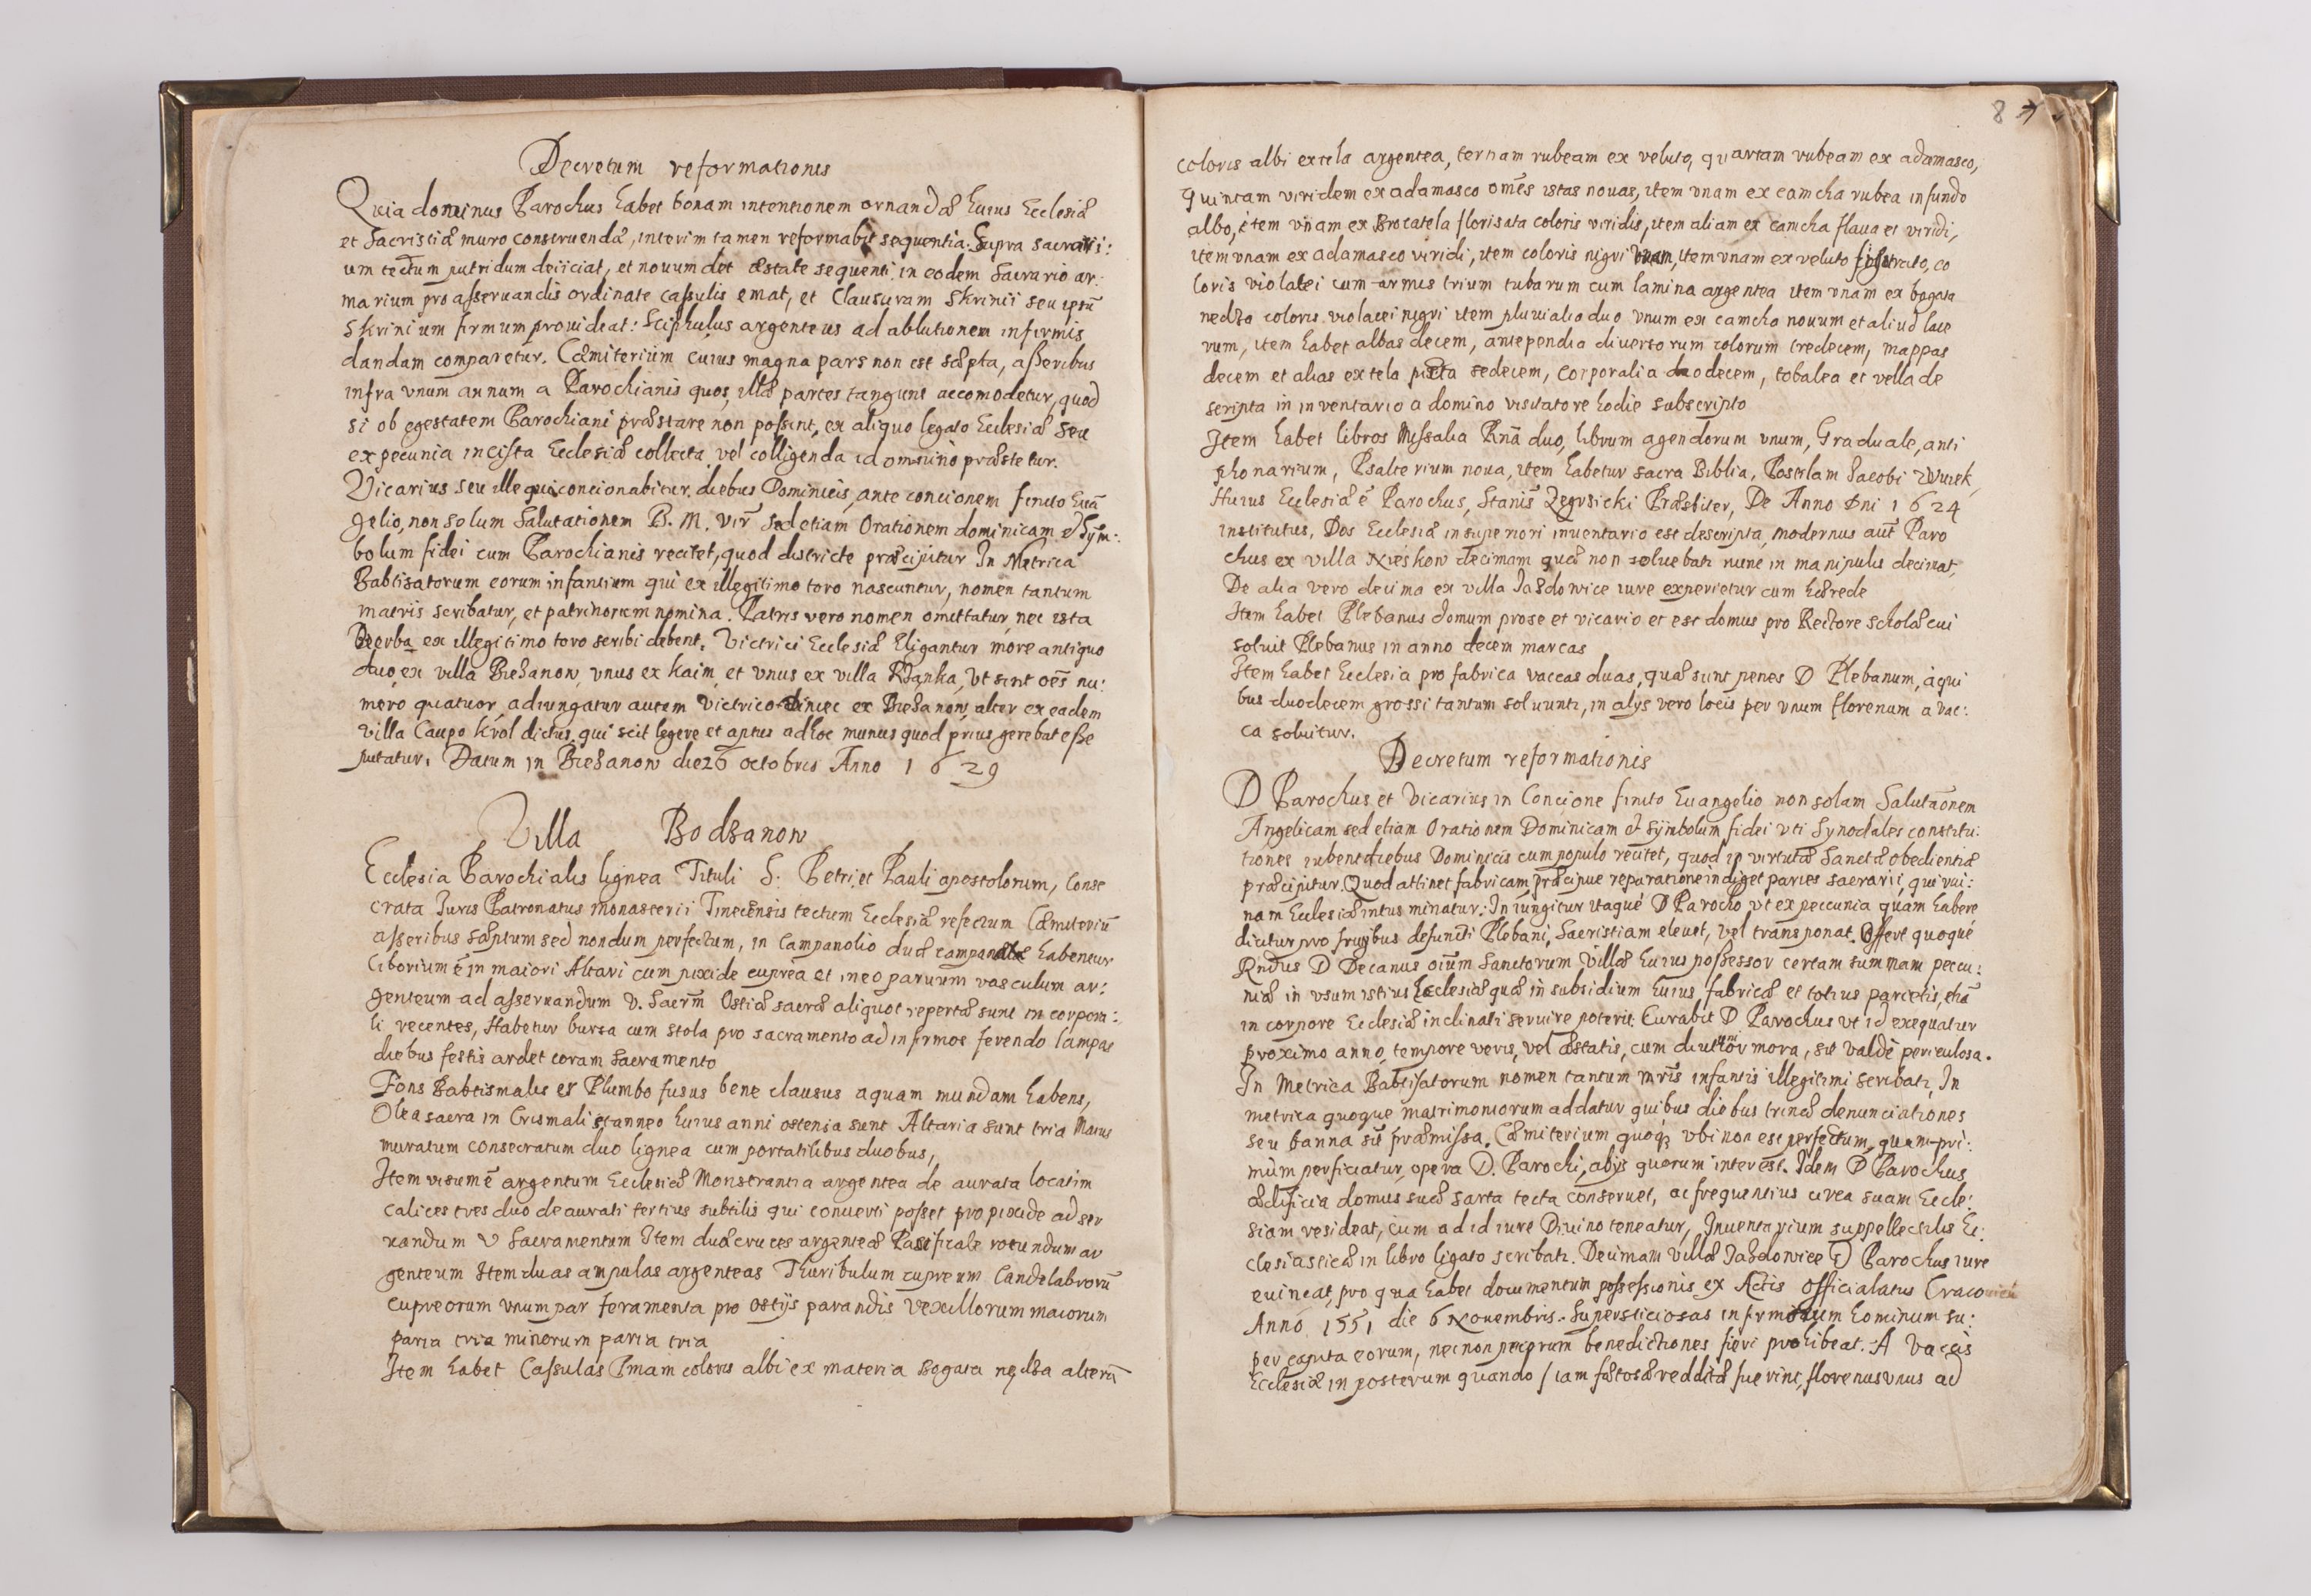 Decretum reformationis
Quia dominus Parochus habet bonam intentionem ornandæ huius Ecclesiæ
et Sacristiæ muro construendæ, interim tamen reformabit sequentia. Supra sacrarii:
um tectum putridum deiiciat, et nouum det æstate sequenti in eodem Sacrario ar:
marium pro asseruandis ordinate casulis emat, et Clausuram Skrinii seu ipsū
Skrinium firmum prouideat: Sciphulus argenteus ad ablutionem infirmis
dandam comparetur. Cæmiterium cuius magna pars non est sæpta, asseribus
infra vnum annum a Parochianis quos, illæ partes tangunt accomodetur, quod
si ob egestatem Parochiani præstare non possint, ex aliquo legato Ecclesiæ seu
ex pecunia in cista Ecclesiæ collecta vel colligenda id omnino præstetur.
Vicarius seu ille qui concionabitur diebus Dominicis, ante concionem finito Euā
gelio, non solum Salutationem B. M. Vir̄ sed etiam Orationem dominicam et Sym:
bolum fidei cum Parochianis recitet, quod districte præcipitur In Metrica
Babtisatorum eorum infantium qui ex illegitimo toro nascuntur, nomen tantum
matris scribatur, et patrinorum nomina. Patris vero nomen omittatur, nec ista
verba ex illegitimo toro scribi debent. Victrici Ecclesiæ Eligantur more antiquo
duo ex villa Biezanow, vnus ex kaim et vnus ex villa Rżąnka, Vt sint oēs nu:
mero quatuor, adiungatur autem Victrico ex Biezanow, alter ex eadem
villa Caupo Król dictus, qui scit legere et aptus ad hoc munus quod prius gerebat esse
putatur. Datum in Biezanow die 26 octobris Anno 1629
Villa Bodzanow
Ecclesia Parochialis lignea Tituli S. Petri et Pauli apostolorum, Conse
crata Iuris Patronatus monasterii Tinecensis tectum Ecclesiæ refectum Cæmiteriū
asseribus sæptum sed nondum perfectum, in Campanolio duæ campanæ habentur
Ciborium ē in maiori Altari cum pixide cuprea et in eo paruum vasculum ar:
genteum ad asseruandum V. Sacrm̄ Ostiæ sacræ aliquot repertæ sunt in corpora:
li recentes, Habetur bursa cum stola pro sacramento ad infirmos ferendo lampas
diebus festis ardet coram Sacramento
Fons Babtismalis ex Plumbo fusus bene clausus aquam mundam habens,
Olea sacra in Crismali stanneo huius anni ostensa sunt Altaria sunt tria Maius
muratum consecratum duo lignea cum portatilibus duobus,
Item visum ē argentum Ecclesiæ Monstrantia argentea de aurata locatim
calices tres duo deaurati tertius subtilis qui conuerti posset pro pixide ad ser
uandum V Sacramentum Item duæ cruces argenteæ Pacificale rotundum ar
genteum Item duas ampulas argenteas Thuribulum cupreum Candelabrorū
cupreorum vnum par feramenta pro ostijs parandis Vexillorum maiorum
paria tria minorum paria tria
Item habet Casulas Primam coloris albi ex materia bogata nędza alterā
87
coloris albi ex tela argentea, tertiam rubeam ex veluto, quartam rubeam ex adamasco,
quintam viridem ex adamasco om̄es istas nouas, item vnam ex camcha rubea in fundo
albo, item vnam ex Brocatela florisata coloris viridis, item aliam ex camcha flaua et viridi,
item vnam ex adamasco viridi, item coloris nigri vnam, item vnam ex veluto co
loris violacei cum armis trium tubarum cum lamina argentea item vnam ex bogata
nedza coloris violacei nigri item pluuialia duo vnum ex camcha nouum et aliud lace
rum, item habet albas decem, antependia diuersorum colorum tredecem, mappas
decem et alias ex tela picta sedecem, corporalia duodecem, tobalea et vella de
scripta in inventario a domino visitatore hodie subscripto
Item habet libros Missalia Rn̄a duo, librum agendorum vnum, Graduale, anti
phonarium, Psalterium noua, item habetur sacra Biblia, Postilam Jacobi Wuiek,
Huius Ecclesiæ ē Parochus, Stanis̄ Zegrsicki Præsbiter, De Anno Dni 1624
institutus, Dos Ecclesiæ in superiori inventario est descripta, modernus aut̄ Paro
chus ex villa Nieskow decimam quæ non soluebatr nunc in manipulis decimat,
De alia vero decima ex villa Jazdowice iure experietur cum hærede
Item habet Plebanus domum pro se et vicario et est domus pro Rectore scholæ cui
soluit Plebanus in anno decem marcas
Item habet Ecclesia pro fabrica vaccas duas, quæ sunt penes D Plebanum, a qui
bus duodecem grossi tantum soluuntr, in alijs vero locis per vnum florenum a vac:
ca soluitur.
Decretum reformationis
D Parochus et Vicarius in Concione finito Euangelio non solam Salutāonem
Angelicam sed etiam Orationem Dominicam et symbolum fidei vti Synodales constitu:
tiones iubent diebus Dominicis cum populo recitet, quod in virtute Sanctæ obedientiæ
præcipitur. Quod attinet fabricam, præcipue reparatione indiget paries sacrarii, qui rui:
nam Ecclesiæ intus minatur: Iniungitur itaque D Parocho vt ex peccunia quam habere
dicitur pro frugibus defuncti Plebani, Sacristiam eleuet, vel transponat. Offert quoque
Rndus D Decanus oiūm Sanctorum Villæ huius possessor certam summam peccu:
niæ in vsum istius Ecclesiæ quæ in subsidium huius fabricæ et totius parietis, etiā
in corpore Ecclesiæ inclinati seruire poterit. Curabit D Parochus vt id exequatur
proximo anno, tempore veris, vel æstatis, cum diuturnior mora, sit valde periculosa.
In Metrica Babtisatorum nomen tantum mr̄is infantis illegitimi scribatr, In
metrica quoque matrimoniorum addatur quibus diebus trinæ denunciationes
seu banna sit præmissa. Cæmiterium quoqz vbi non est perfectum, quam pri:
mum perficiatur, opera D. Parochi, alijs quorum interest. Idem D Parochus
ædificia domus suæ sarta tecta conseruet, ac frequentius circa suam Eccle:
siam resideat, cum ad id iure Diuino teneatur, Inuentarium suppellectilis Ec:
clesiasticæ in libro ligato scribatr. Decimam villæ Jazdowice D Parochus iure
euincat, pro qua habet documentum possessionis ex Actis Officialatus Cracouien
Anno 1551 die 6 Nouembris. Supersticiosas infirmorum hominum su:
per capita eorum, necnon pecorum benedictiones fieri prohibeat. A Vaccis
Ecclesiæ in posterum quando iam fætosæ redditæ fuerint, florenus vnus ad